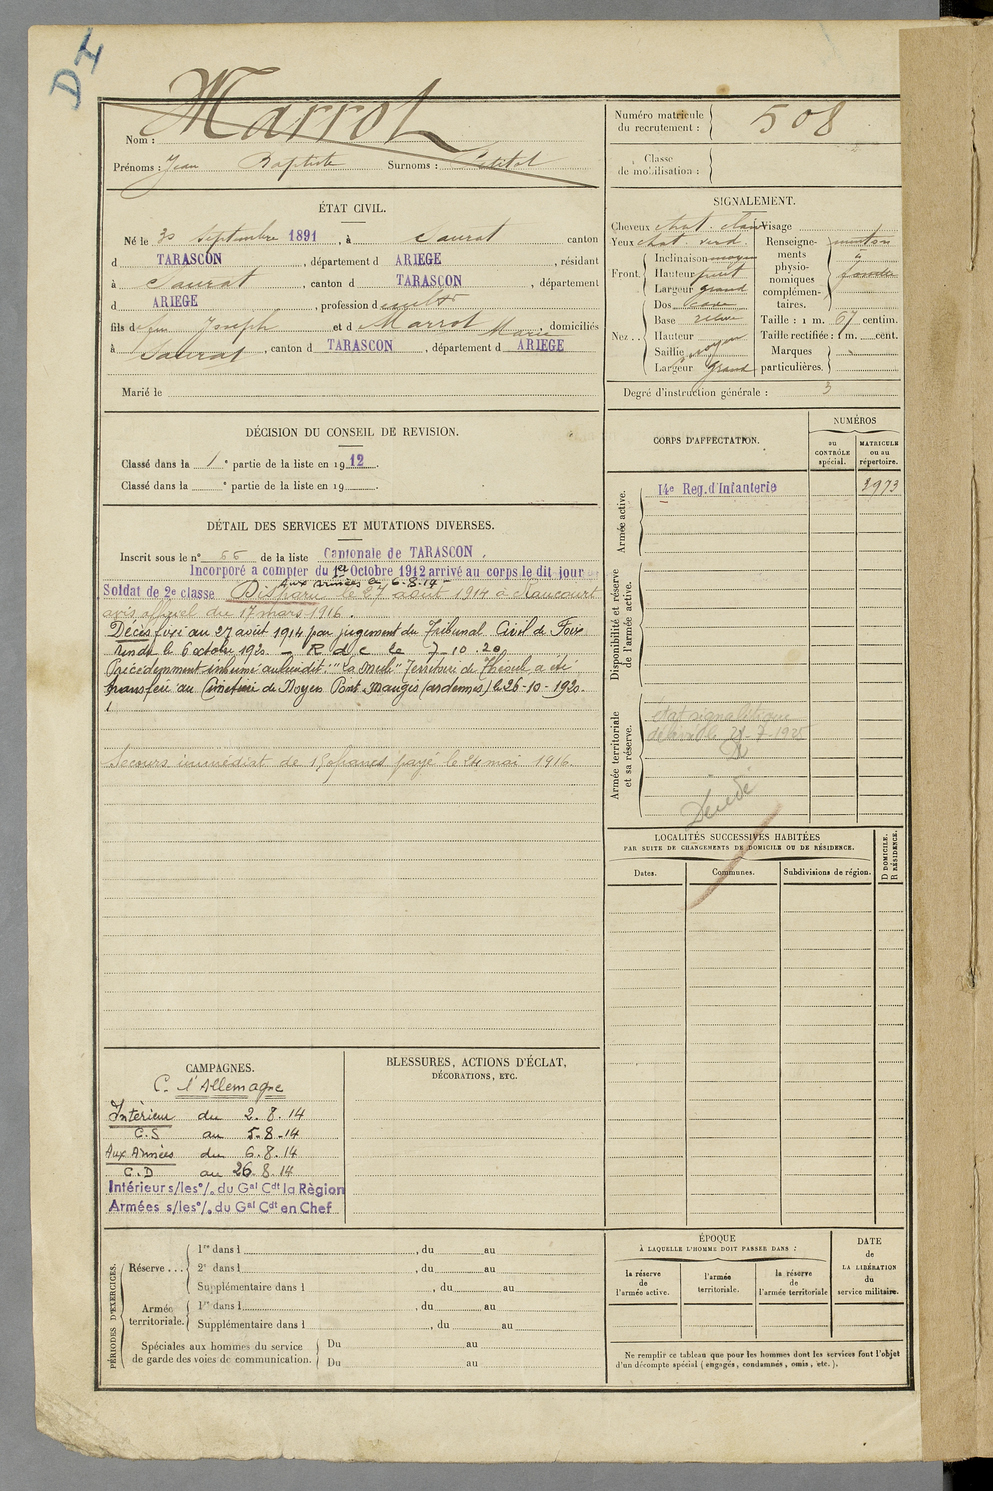 DI
Nom : Marrot
Prénoms : Jean Baptiste Surnoms :
ÉTAT CIVIL.
Né le 30 Septembre 1891, à Saurat canton
d TARASCON, département d ARIEGE, résidant
à Saurat, canton d TARASCON, département
d ARIEGE, profession d cultr
fils de feu Joseph et d Marrot Marie, domiciliés
à Saurat, canton d TARASCON, département d ARIEGE
Marié le
DÉCISION DU CONSEIL DE REVISION.
Classé dans la 1e partie de la liste en 1912.
Classé dans la e partie de la liste en 19 .
DÉTAIL DES SERVICES ET MUTATIONS DIVERSES.
Inscrit sous le n° 66 de la liste Cantonale de TARASCON.
Incorporé a compter du 1er Octobre 1912 arrivé au corps le dit jour
aux armées le 6-8-14 -
Soldat de 2e classe Disparu le 27 août 1914 à Raucourt
avis officiel du 17 mars 1916.
Décès fixé au 27 août 1914 par jugement du Tribunal Civil de Foix
rendu le 6 octobre 1920. - R d c le 7-10.20
Précédemment inhumé au lieudit "La Meule" Territoire de Thésel a été
transféré au Cimetière de Noyers Pont-Maugis (ardennes) le 26-10-1920.
Secours immédiat de 150 francs payé le 24 mai 1916.
CAMPAGNES.
C. l'Allemagne
Intérieur du 2.8.14
C.S au 5-8-14
Aux Armées du 6.8.14
C.D au 26.8.14
Intérieur s/les °/. du Gal Cdt la Règion
Armées s/les °/. du Gal Cdt en Chef
BLESSURES, ACTIONS D'ÉCLAT,
DÉCORATIONS, ETC.
PÉRIODES D'EXERCICES.
Réserve ...
1re dans l , du au
2e dans l , du au
Supplémentaire dans l , du au
Armée territoriale.
1re dans l , du au
Supplémentaire dans l , du au
Spéciales aux hommes du service
de garde des voies de communication.
Du au
Du au
Numéro matricule
du recrutement : 508
Classe
de mobilisation :
SIGNALEMENT.
Cheveux chat. clair
Yeux chat. verd.
Front.
Inclinaison moyen
Hauteur petit
Largeur grand
Nez ..
Dos cave
Base relevé
Hauteur moyen
Saillie
Largeur grand
Visage
Renseignements
physionomiques
complémentaires.
menton
"
Taille : 1 m. 67 centim.
Taille rectifiée : 1 m. cent.
Marques
particulières.
Degré d'instruction générale : 3
CORPS D'AFFECTATION.
NUMÉROS
au
CONTRÔLE
spécial.
MATRICULE
ou au
répertoire.
Armée active.
14e Reg. d'Infanterie 2973
Disponibilité et réserve
de l'armée active.
Armée territoriale
et sa réserve.
état signalétique
délivré le 21-7-1925
Décédé
LOCALITÉS SUCCESSIVES HABITÉES
PAR SUITE DE CHANGEMENTS DE DOMICILE OU DE RÉSIDENCE.
Dates. Communes. Subdivisions de région.
D DOMICILE.
R RÉSIDENCE.
ÉPOQUE
À LAQUELLE L'HOMME DOIT PASSER DANS :
la réserve
de
l'armée active.
l'armée
territoriale.
la réserve
de
l'armée territoriale
DATE
de
LA LIBÉRATION
du
service militaire.
Ne remplir ce tableau que pour les hommes dont les services font l'objet
d'un décompte spécial (engagés, condamnés, omis, etc.).